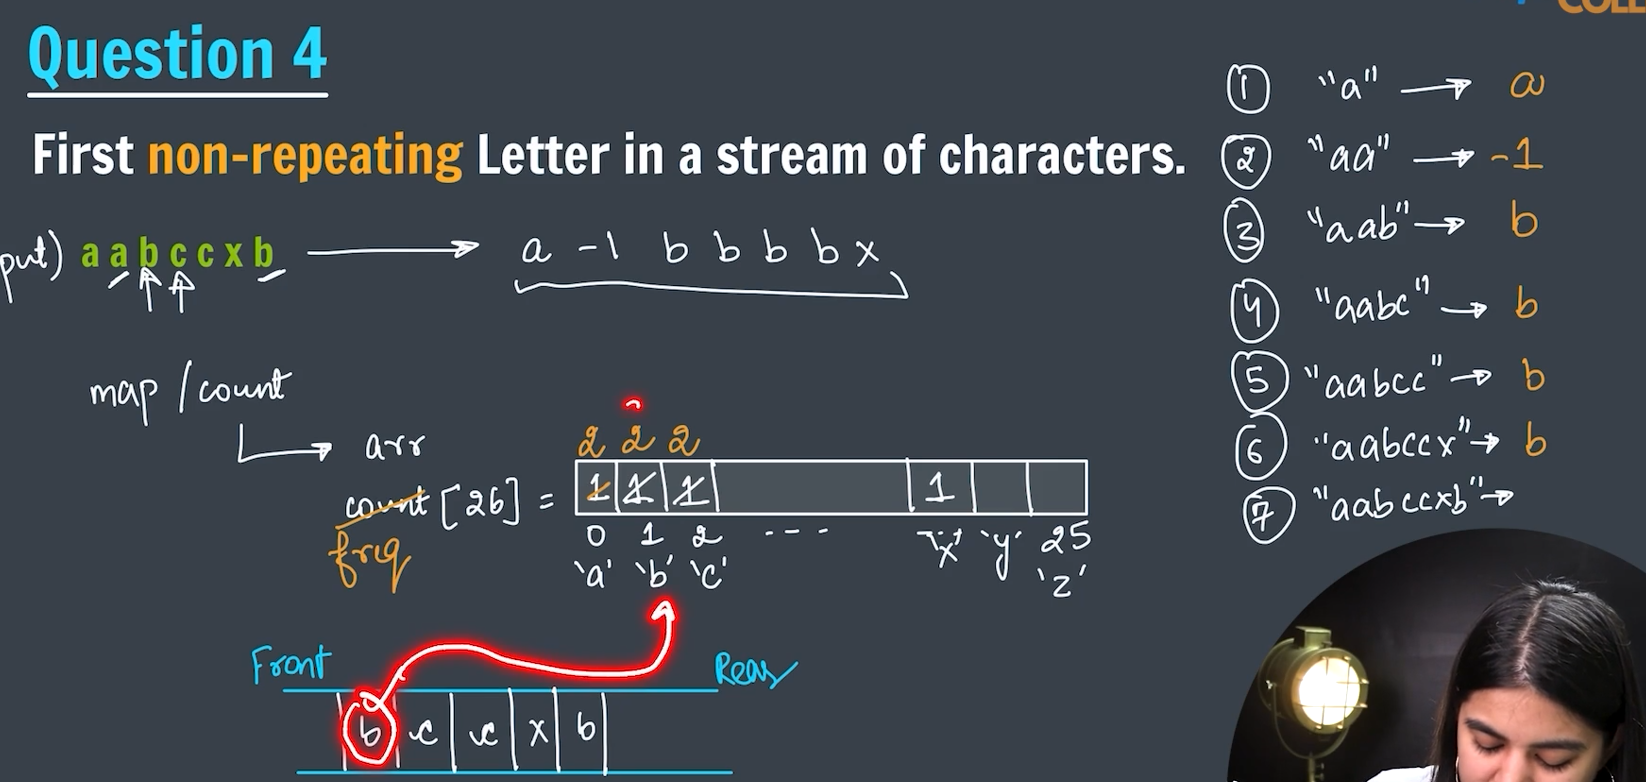 COLL
Question 4
First non-repeating Letter in a stream of characters.
put) a a b c c x b → a -1 b b b b x
map / count
→ arr
count [26] =
freq
2 2 2
1 1 1 1
0 1 2 - - - 'x' 'y' 25
'a' 'b' 'c' 'z'
Front Rear
b c c x b
① "a" → a
② "aa" → -1
③ "aab" → b
④ "aabc" → b
⑤ "aabcc" → b
⑥ "aabccx" → b
⑦ "aabccxb" →